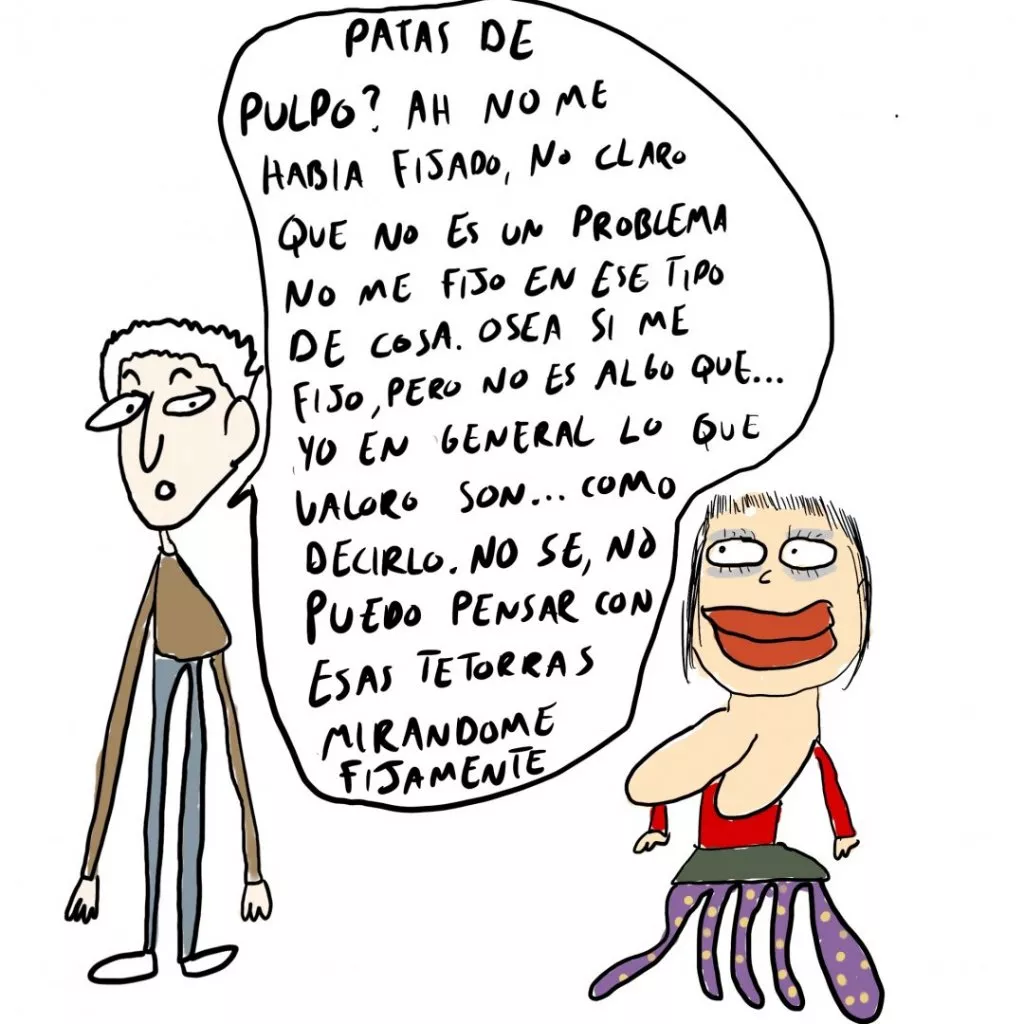 PATAS DE
PULPO? AH NO ME
HABIA FIJADO, NO CLARO
QUE NO ES UN PROBLEMA
NO ME FIJO EN ESE TIPO
DE COSA. OSEA SI ME
FIJO, PERO NO ES ALGO QUE...
YO EN GENERAL LO QUE
VALORO SON... COMO
DECIRLO. NO SE, NO
PUEDO PENSAR CON
ESAS TETORRAS
MIRANDOME
FIJAMENTE